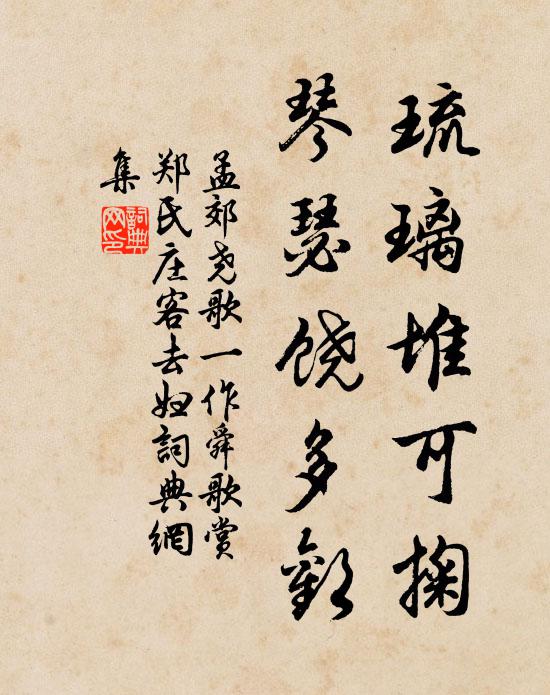 琉璃堆可掬
琴瑟饶多歡
孟郊尧歌一作舜歌赏
郑氏庄客去妇詞典網
集
詞典网印